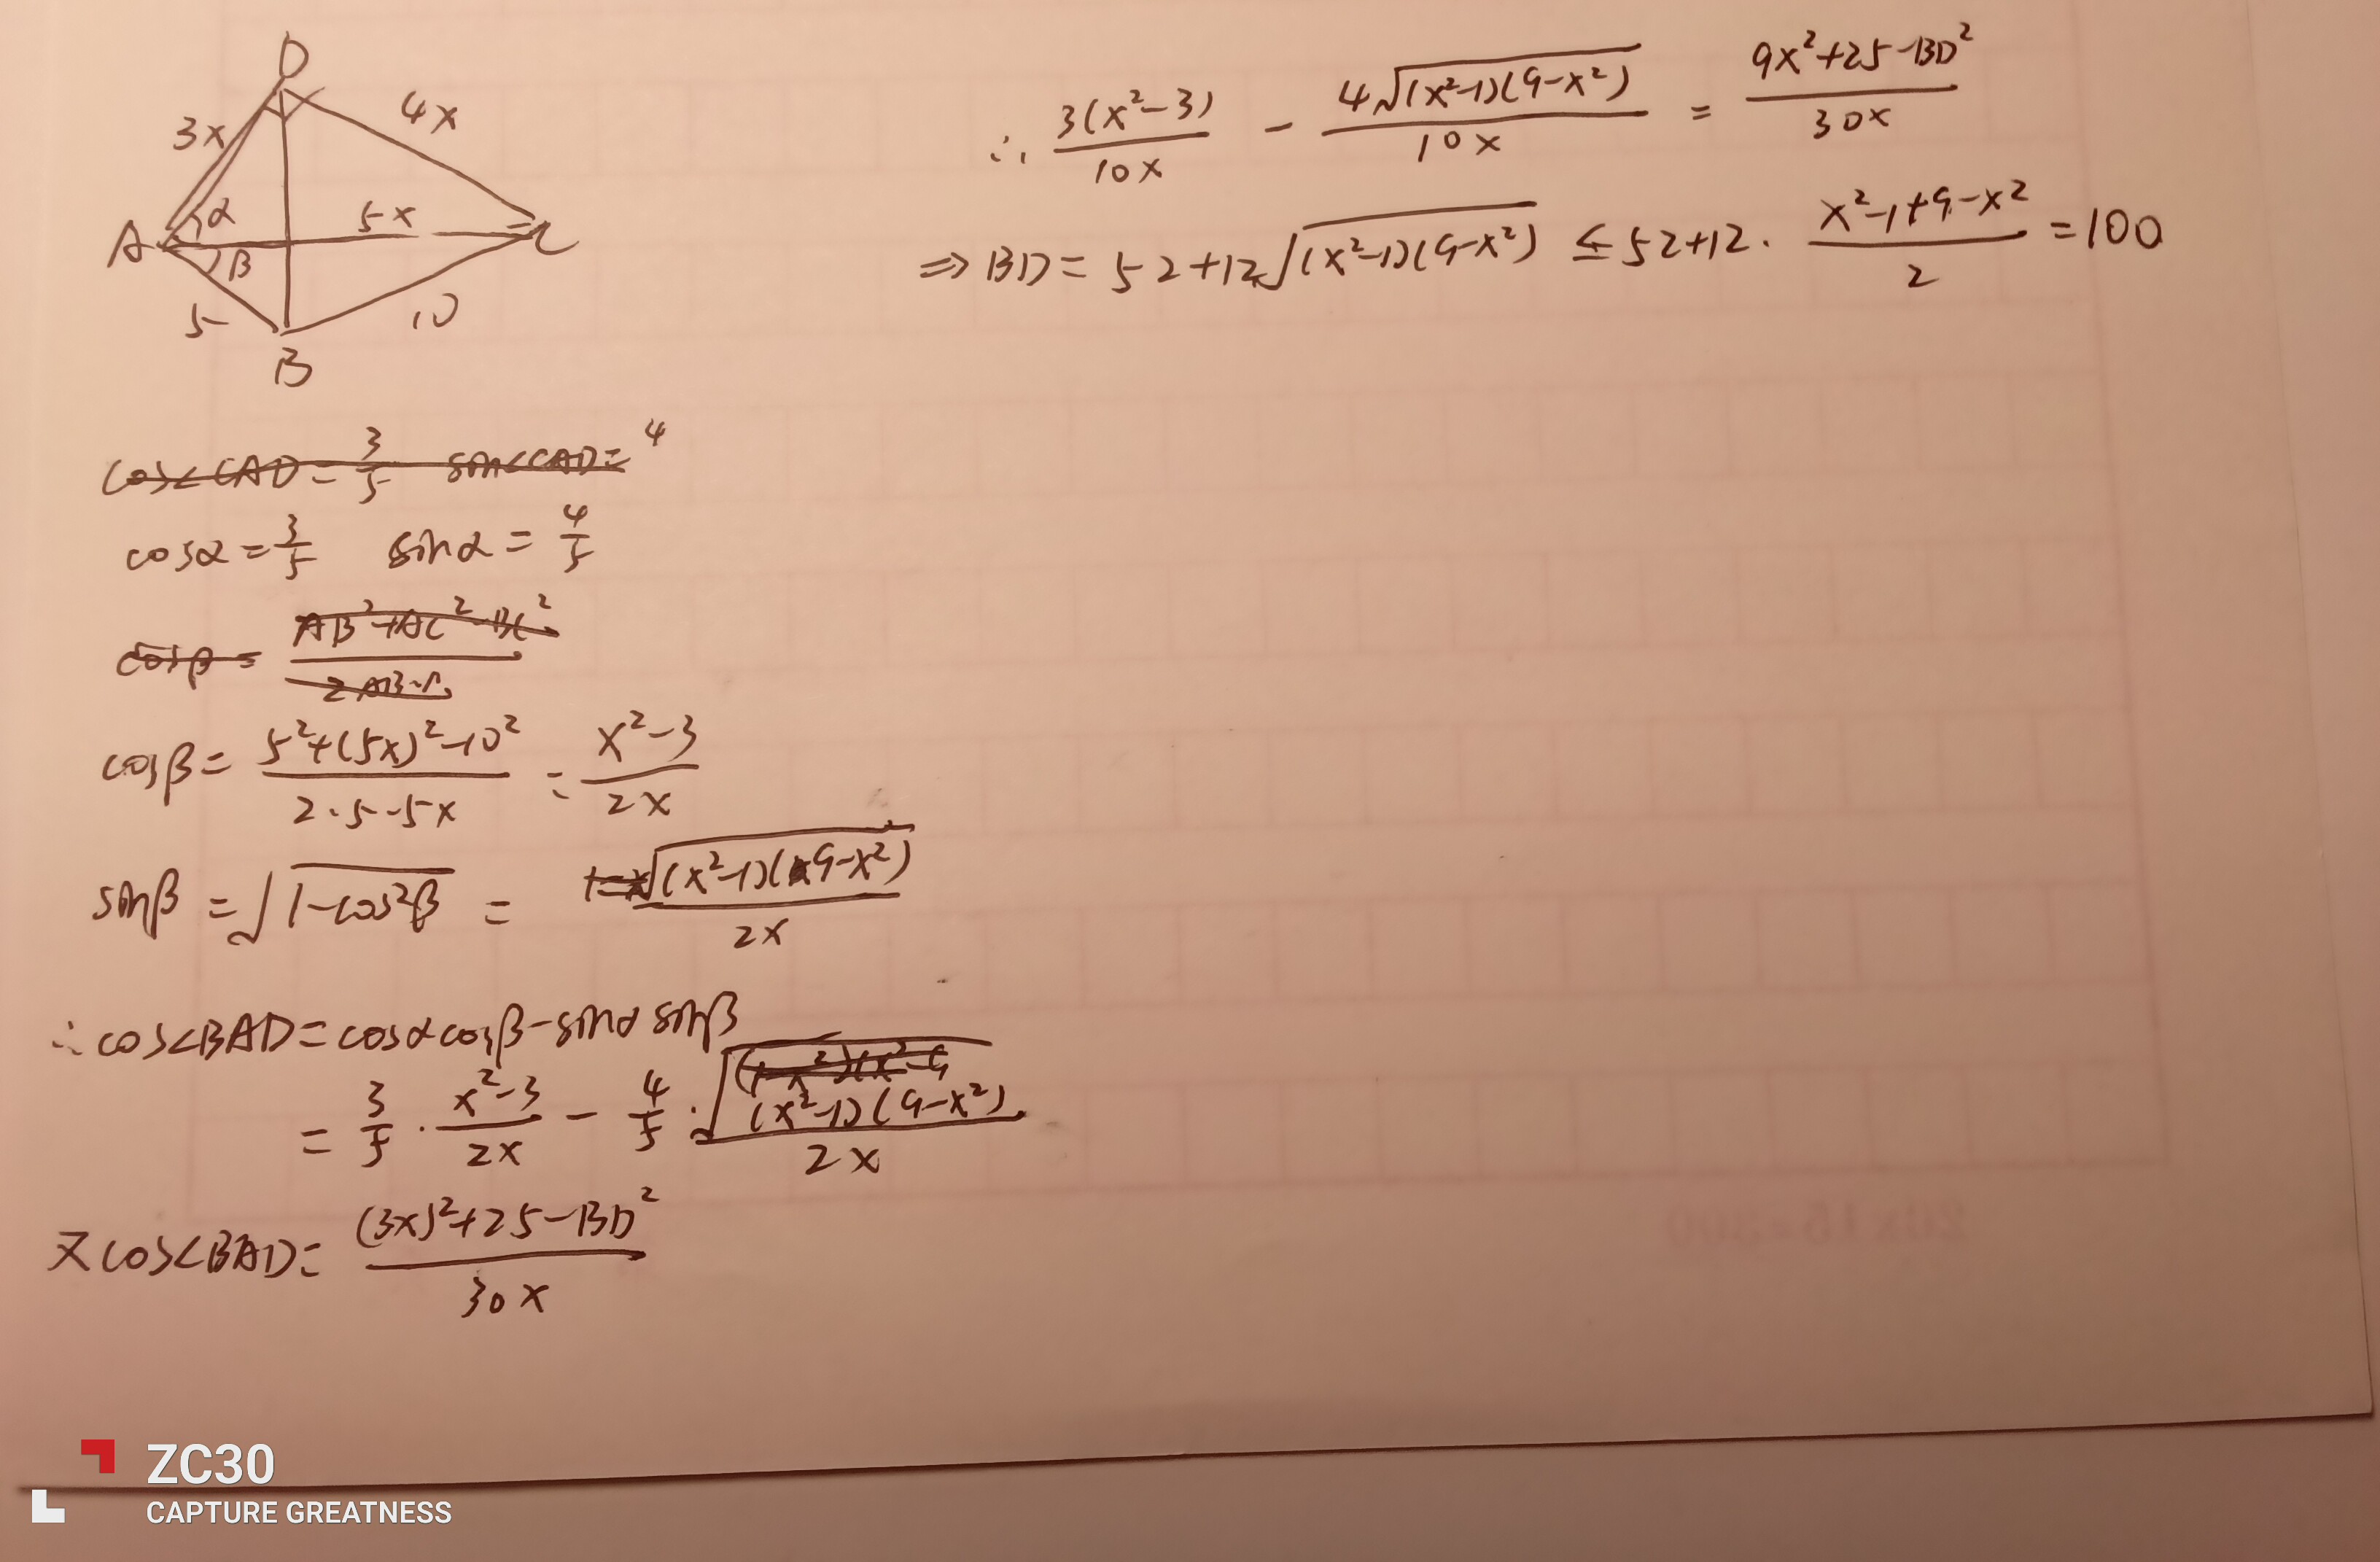 D
3x
4x
A
α
5x
C
β
5
10
B
cos∠CAD = 3/5 sin∠CAD = 4
cosα = 3/5 sinα = 4/5
cosβ = (AB²+AC²-BC²)/(2AB·A
cosβ = (5²+(5x)²-10²)/(2·5·5x) = (x²-3)/(2x)
sinβ = √(1-cos²β) = √((x²-1)(9-x²))/(2x)
∴ cos∠BAD = cosαcosβ - sinαsinβ
= 3/5 · (x²-3)/(2x) - 4/5 · √((x²-1)(9-x²))/(2x)
又 cos∠BAD = ((3x)²+25-BD²)/(30x)
∴ 3(x²-3)/(10x) - 4√((x²-1)(9-x²))/(10x) = (9x²+25-BD²)/(30x)
⇒ BD = 52+12√((x²-1)(9-x²)) ≤ 52+12· (x²-1+9-x²)/2 = 100
20x15=300
ZC30
CAPTURE GREATNESS